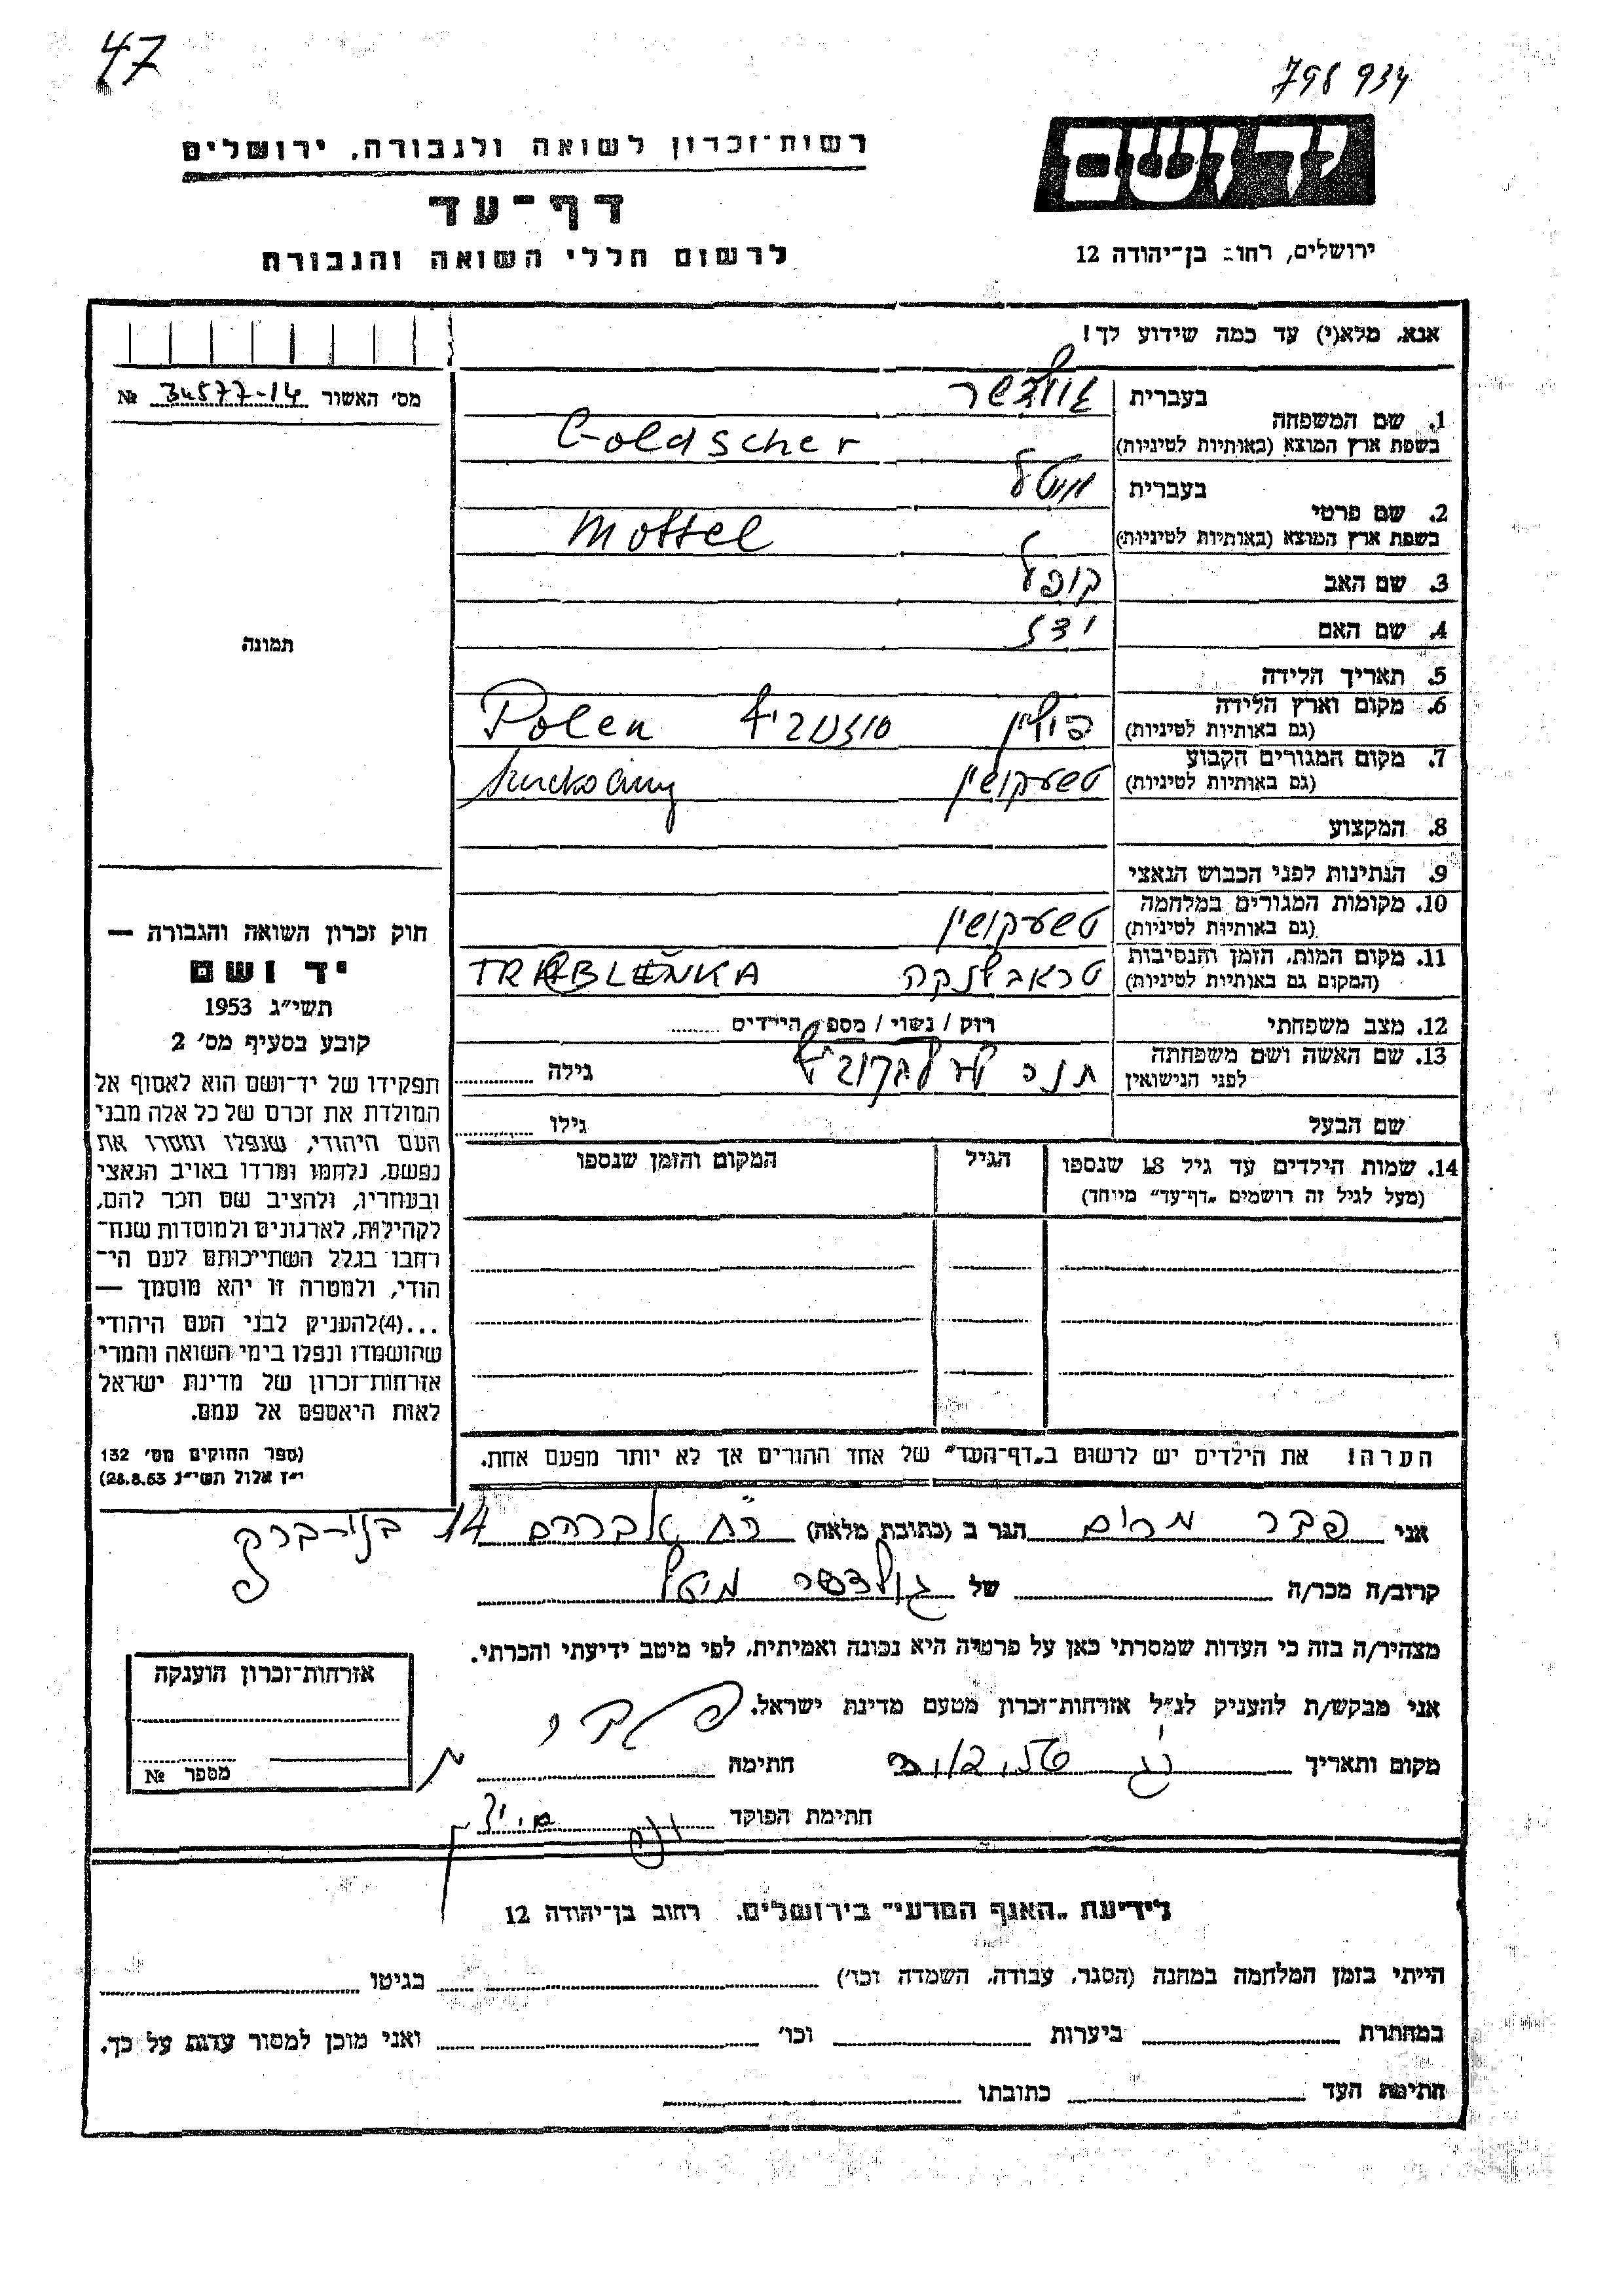 47
798 934
יד ושם
רשות־זכרון לשואה ולגבורה, ירושלים
דף־עד
לרשום חללי השואה והגבורה
ירושלים, רחוב בן־יהודה 12
אנא, מלא(י) עד כמה שידוע לך!
מס' האשור 34577-14 №
1. שם המשפחה
בעברית גולדשר
בשפת ארץ המוצא (באותיות לטיניות) Goldscher
2. שם פרטי
בעברית מוטל
בשפת ארץ המוצא (באותיות לטיניות) Mottel
3. שם האב קופל
4. שם האם
5. תאריך הלידה
6. מקום וארץ הלידה
(גם באותיות לטיניות) פולין Polen
7. מקום המגורים הקבוע
(גם באותיות לטיניות) טשעקושין
8. המקצוע
9. הנתינות לפני הכבוש הנאצי
10. מקומות המגורים במלחמה
(גם באותיות לטיניות) טשעקושין
11. מקום המות, הזמן והנסיבות
(המקום גם באותיות לטיניות) טראבלנקה TREBLENKA
12. מצב משפחתי רוק / נשוי / מספר הילדים
13. שם האשה ושם משפחתה
לפני הנישואין חנה גילה
שם הבעל גילו
14. שמות הילדים עד גיל 18 שנספו הגיל המקום והזמן שנספו
(מעל לגיל זה רושמים "דף־עד" מיוחד)
הערה! את הילדים יש לרשום ב"דף־העד" של אחד ההורים אך לא יותר מפעם אחת.
תמונה
חוק זכרון השואה והגבורה —
יד ושם
תשי״ג 1953
קובע בסעיף מס' 2
תפקידו של יד־ושם הוא לאסוף אל
המולדת את זכרם של כל אלה מבני
העם היהודי, שנפלו ומסרו את
נפשם, נלחמו ומרדו באויב הנאצי
ובעוזריו, ולהציב שם וזכר להם,
לקהילות, לארגונים ולמוסדות שנח־
רחבו בגלל השתייכותם לעם הי־
הודי, ולמטרה זו יהא מוסמך —
...(4)להעניק לבני העם היהודי
שהושמדו ונפלו בימי השואה והמרי
אזרחות־זכרון של מדינת ישראל
לאות היאספם אל עמם.
(ספר החוקים מס' 132
י״ז אלול תשי״ג 28.8.53)
אני פבר מרים הגר ב (כתובת מלאה) אברהם 14 בני־ברק
קרוב/ה מכר/ה של גולדשר מוטל
מצהיר/ה בזה כי העדות שמסרתי כאן על פרטיה היא נכונה ואמיתית, לפי מיטב ידיעתי והכרתי.
אני מבקש/ת להעניק לנ״ל אזרחות־זכרון מטעם מדינת ישראל.
מקום ותאריך חתימה
חתימת הפוקד
אזרחות־זכרון הוענקה
מספר №
לידיעת "האגף המדעי" בירושלים, רחוב בן־יהודה 12
הייתי בזמן המלחמה במחנה (הסגר, עבודה, השמדה וכו') בגיטו
במחתרת ביערות וכו' ואני מוכן למסור עדות על כך.
חתימת העד כתובתו